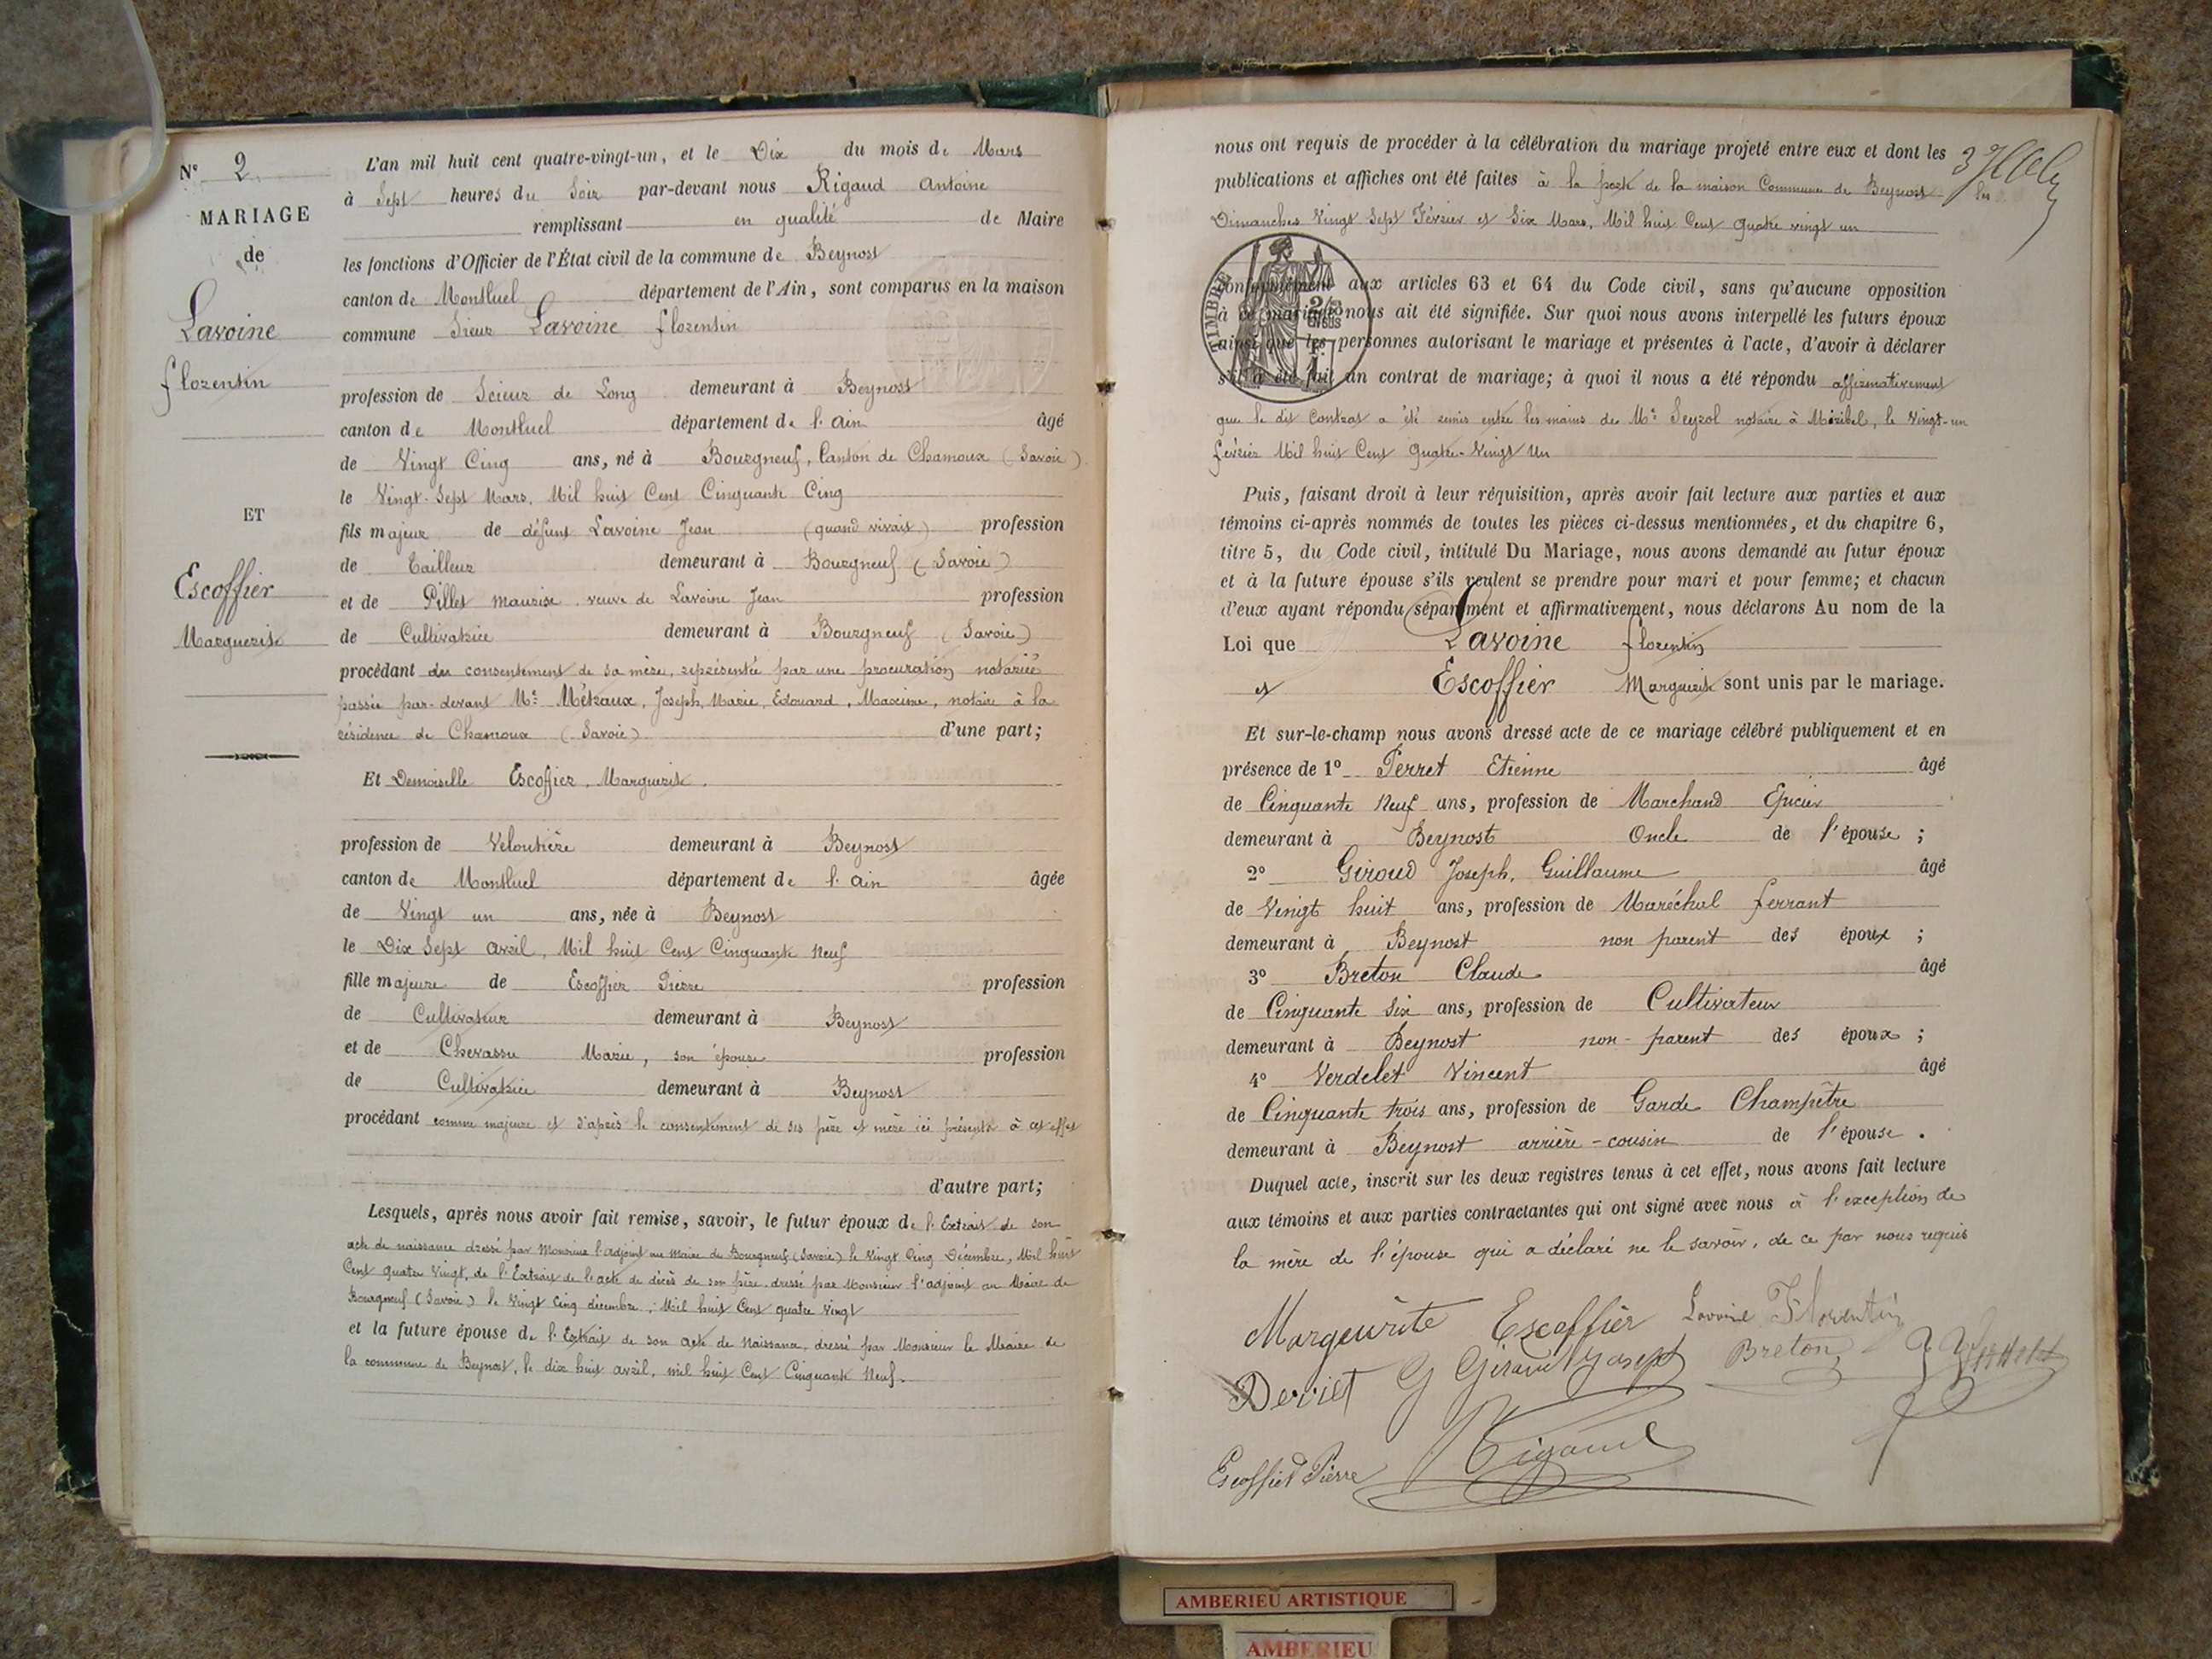 N° 2
MARIAGE
de
Lavoine
florentin
ET
Escoffier
Marguerite
L'an mil huit cent quatre-vingt-un, et le Dix du mois de Mars
à Sept heures du Soir par-devant nous Rigaud Antoine
remplissant en qualité de Maire
les fonctions d'Officier de l'État civil de la commune de Beynost
canton de Montluel département de l'Ain, sont comparus en la maison
commune Sieur Lavoine florentin
profession de Scieur de Long demeurant à Beynost
canton de Montluel département de l'ain âgé
de Vingt Cinq ans, né à Bourgneuf, Canton de Chamoux (Savoie)
le Vingt-Sept Mars, Mil huit Cent Cinquante Cinq
fils majeur de défunt Lavoine Jean (quand vivait) profession
de Tailleur demeurant à Bourgneuf (Savoie)
et de Pillet Maurise veuve de Lavoine Jean profession
de Cultivatrice demeurant à Bourgneuf (Savoie)
procédant du consentement de sa mère, représentée par une procuration notariée
passée par-devant Me Métraux, Joseph, Marie, Edouard, Maxime, notaire à la
résidence de Chamoux (Savoie) d'une part;
Et Demoiselle Escoffier, Marguerite.
profession de Veloutière demeurant à Beynost
canton de Montluel département de l'ain âgée
de Vingt un ans, née à Beynost
le Dix Sept avril, Mil huit Cent Cinquante Neuf
fille majeure de Escoffier Pierre profession
de Cultivateur demeurant à Beynost
et de Chevassu Marie, son épouse profession
de Cultivatrice demeurant à Beynost
procédant comme majeure et d'après le consentement de ses père et mère ici présents à cet effet
d'autre part;
Lesquels, après nous avoir fait remise, savoir, le futur époux de l'Extrait de son
acte de naissance dressé par Monsieur l'adjoint au Maire de Bourgneuf (Savoie) le Vingt Cinq Décembre, Mil huit
Cent quatre Vingt, de l'Extrait de l'acte de décès de son père dressé par Monsieur l'adjoint au Maire de
Bourgneuf (Savoie) le Vingt Cinq décembre, Mil huit Cent quatre Vingt
et la future épouse de l'Extrait de son acte de Naissance, dressé par Monsieur le Maire de
la commune de Beynost, le dix huit avril, mil huit Cent Cinquante Neuf.
nous ont requis de procéder à la célébration du mariage projeté entre eux et dont les
publications et affiches ont été faites à la porte de la maison Commune de Beynost les
Dimanches Vingt Sept Février et Six Mars, Mil huit Cent Quatre vingt un
TIMBRE
conformément aux articles 63 et 64 du Code civil, sans qu'aucune opposition
à ce mariage nous ait été signifiée. Sur quoi nous avons interpellé les futurs époux
ainsi que les personnes autorisant le mariage et présentes à l'acte, d'avoir à déclarer
s'il a été fait un contrat de mariage; à quoi il nous a été répondu affirmativement
que le dit Contrat a été remis entre les mains de Me Seyzol notaire à Miribel, le Vingt-un
février Mil huit Cent Quatre-Vingt Un
Puis, faisant droit à leur réquisition, après avoir fait lecture aux parties et aux
témoins ci-après nommés de toutes les pièces ci-dessus mentionnées, et du chapitre 6,
titre 5, du Code civil, intitulé Du Mariage, nous avons demandé au futur époux
et à la future épouse s'ils veulent se prendre pour mari et pour femme; et chacun
d'eux ayant répondu séparément et affirmativement, nous déclarons Au nom de la
Loi que Lavoine florentin
et Escoffier Marguerite sont unis par le mariage.
Et sur-le-champ nous avons dressé acte de ce mariage célébré publiquement et en
présence de 1° Perret Etienne âgé
de Cinquante Neuf ans, profession de Marchand Epicier
demeurant à Beynost Oncle de l'épouse ;
2° Giroud Joseph, Guillaume âgé
de Vingt huit ans, profession de Maréchal ferrant
demeurant à Beynost non parent des époux ;
3° Breton Claude âgé
de Cinquante six ans, profession de Cultivateur
demeurant à Beynost non-parent des époux ;
4° Verdelet Vincent âgé
de Cinquante trois ans, profession de Garde Champêtre
demeurant à Beynost arrière-cousin de l'épouse.
Duquel acte, inscrit sur les deux registres tenus à cet effet, nous avons fait lecture
aux témoins et aux parties contractantes qui ont signé avec nous à l'exception de
la mère de l'épouse qui a déclaré ne le savoir, de ce par nous requis
Marguerite Escoffier Lavoine Florentin
G Giroud Joseph Breton
Escoffier Pierre Rigaud
AMBERIEU ARTISTIQUE
AMBERIEU